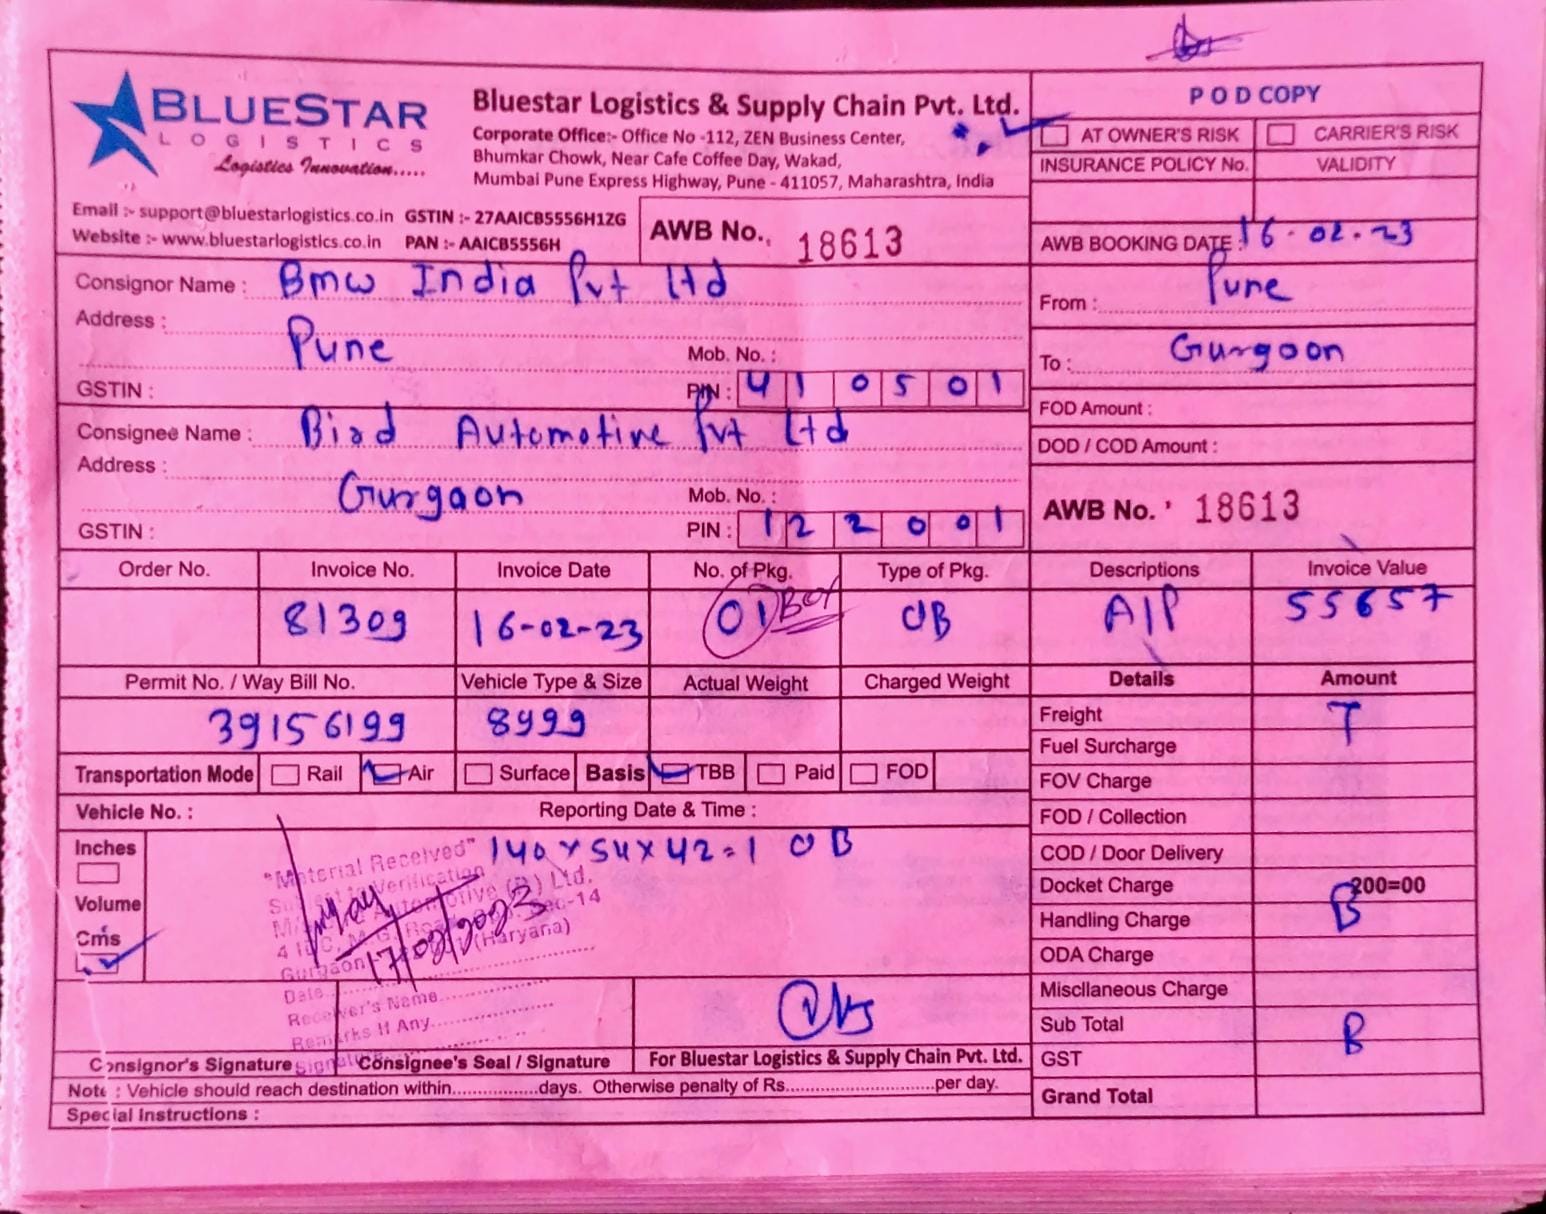 BLUESTAR
LOGISTICS
Logistics Innovation.....
Bluestar Logistics & Supply Chain Pvt. Ltd.
Corporate Office:- Office No -112, ZEN Business Center,
Bhumkar Chowk, Near Cafe Coffee Day, Wakad,
Mumbai Pune Express Highway, Pune - 411057, Maharashtra, India
Email :- support@bluestarlogistics.co.in GSTIN :- 27AAICB5556H1ZG
Website :- www.bluestarlogistics.co.in PAN :- AAICB5556H
AWB No. 18613
POD COPY
AT OWNER'S RISK CARRIER'S RISK
INSURANCE POLICY No. VALIDITY
AWB BOOKING DATE : 16-02-23
From : Pune
To : Gurgoon
FOD Amount :
DOD / COD Amount :
AWB No. 18613
Consignor Name : Bmw India Pvt Ltd
Address :
Pune Mob. No. :
GSTIN : PIN : 410501
Consignee Name : Bird Automotive Pvt Ltd
Address :
Gurgaon Mob. No. :
GSTIN : PIN : 122001
Order No. Invoice No. Invoice Date No. of Pkg. Type of Pkg. Descriptions Invoice Value
81309 16-02-23 01 Box OB A/P 55657
Permit No. / Way Bill No. Vehicle Type & Size Actual Weight Charged Weight
39156199 8499
Transportation Mode Rail Air Surface Basis TBB Paid FOD
Vehicle No. : Reporting Date & Time :
Inches
Volume
Cms
140 x 54 x 42 = 1 OB
"Material Received"
Subject to Verification
Automotive (P) Ltd.
Gurgaon (Haryana)
17/02/2023
Date
Receiver's Name
Remarks If Any
Consignor's Signature Consignee's Seal / Signature For Bluestar Logistics & Supply Chain Pvt. Ltd.
Note : Vehicle should reach destination within.................days. Otherwise penalty of Rs..............................per day.
Special Instructions :
Details Amount
Freight T
Fuel Surcharge
FOV Charge
FOD / Collection
COD / Door Delivery
Docket Charge 200=00
Handling Charge B
ODA Charge
Miscllaneous Charge
Sub Total B
GST
Grand Total